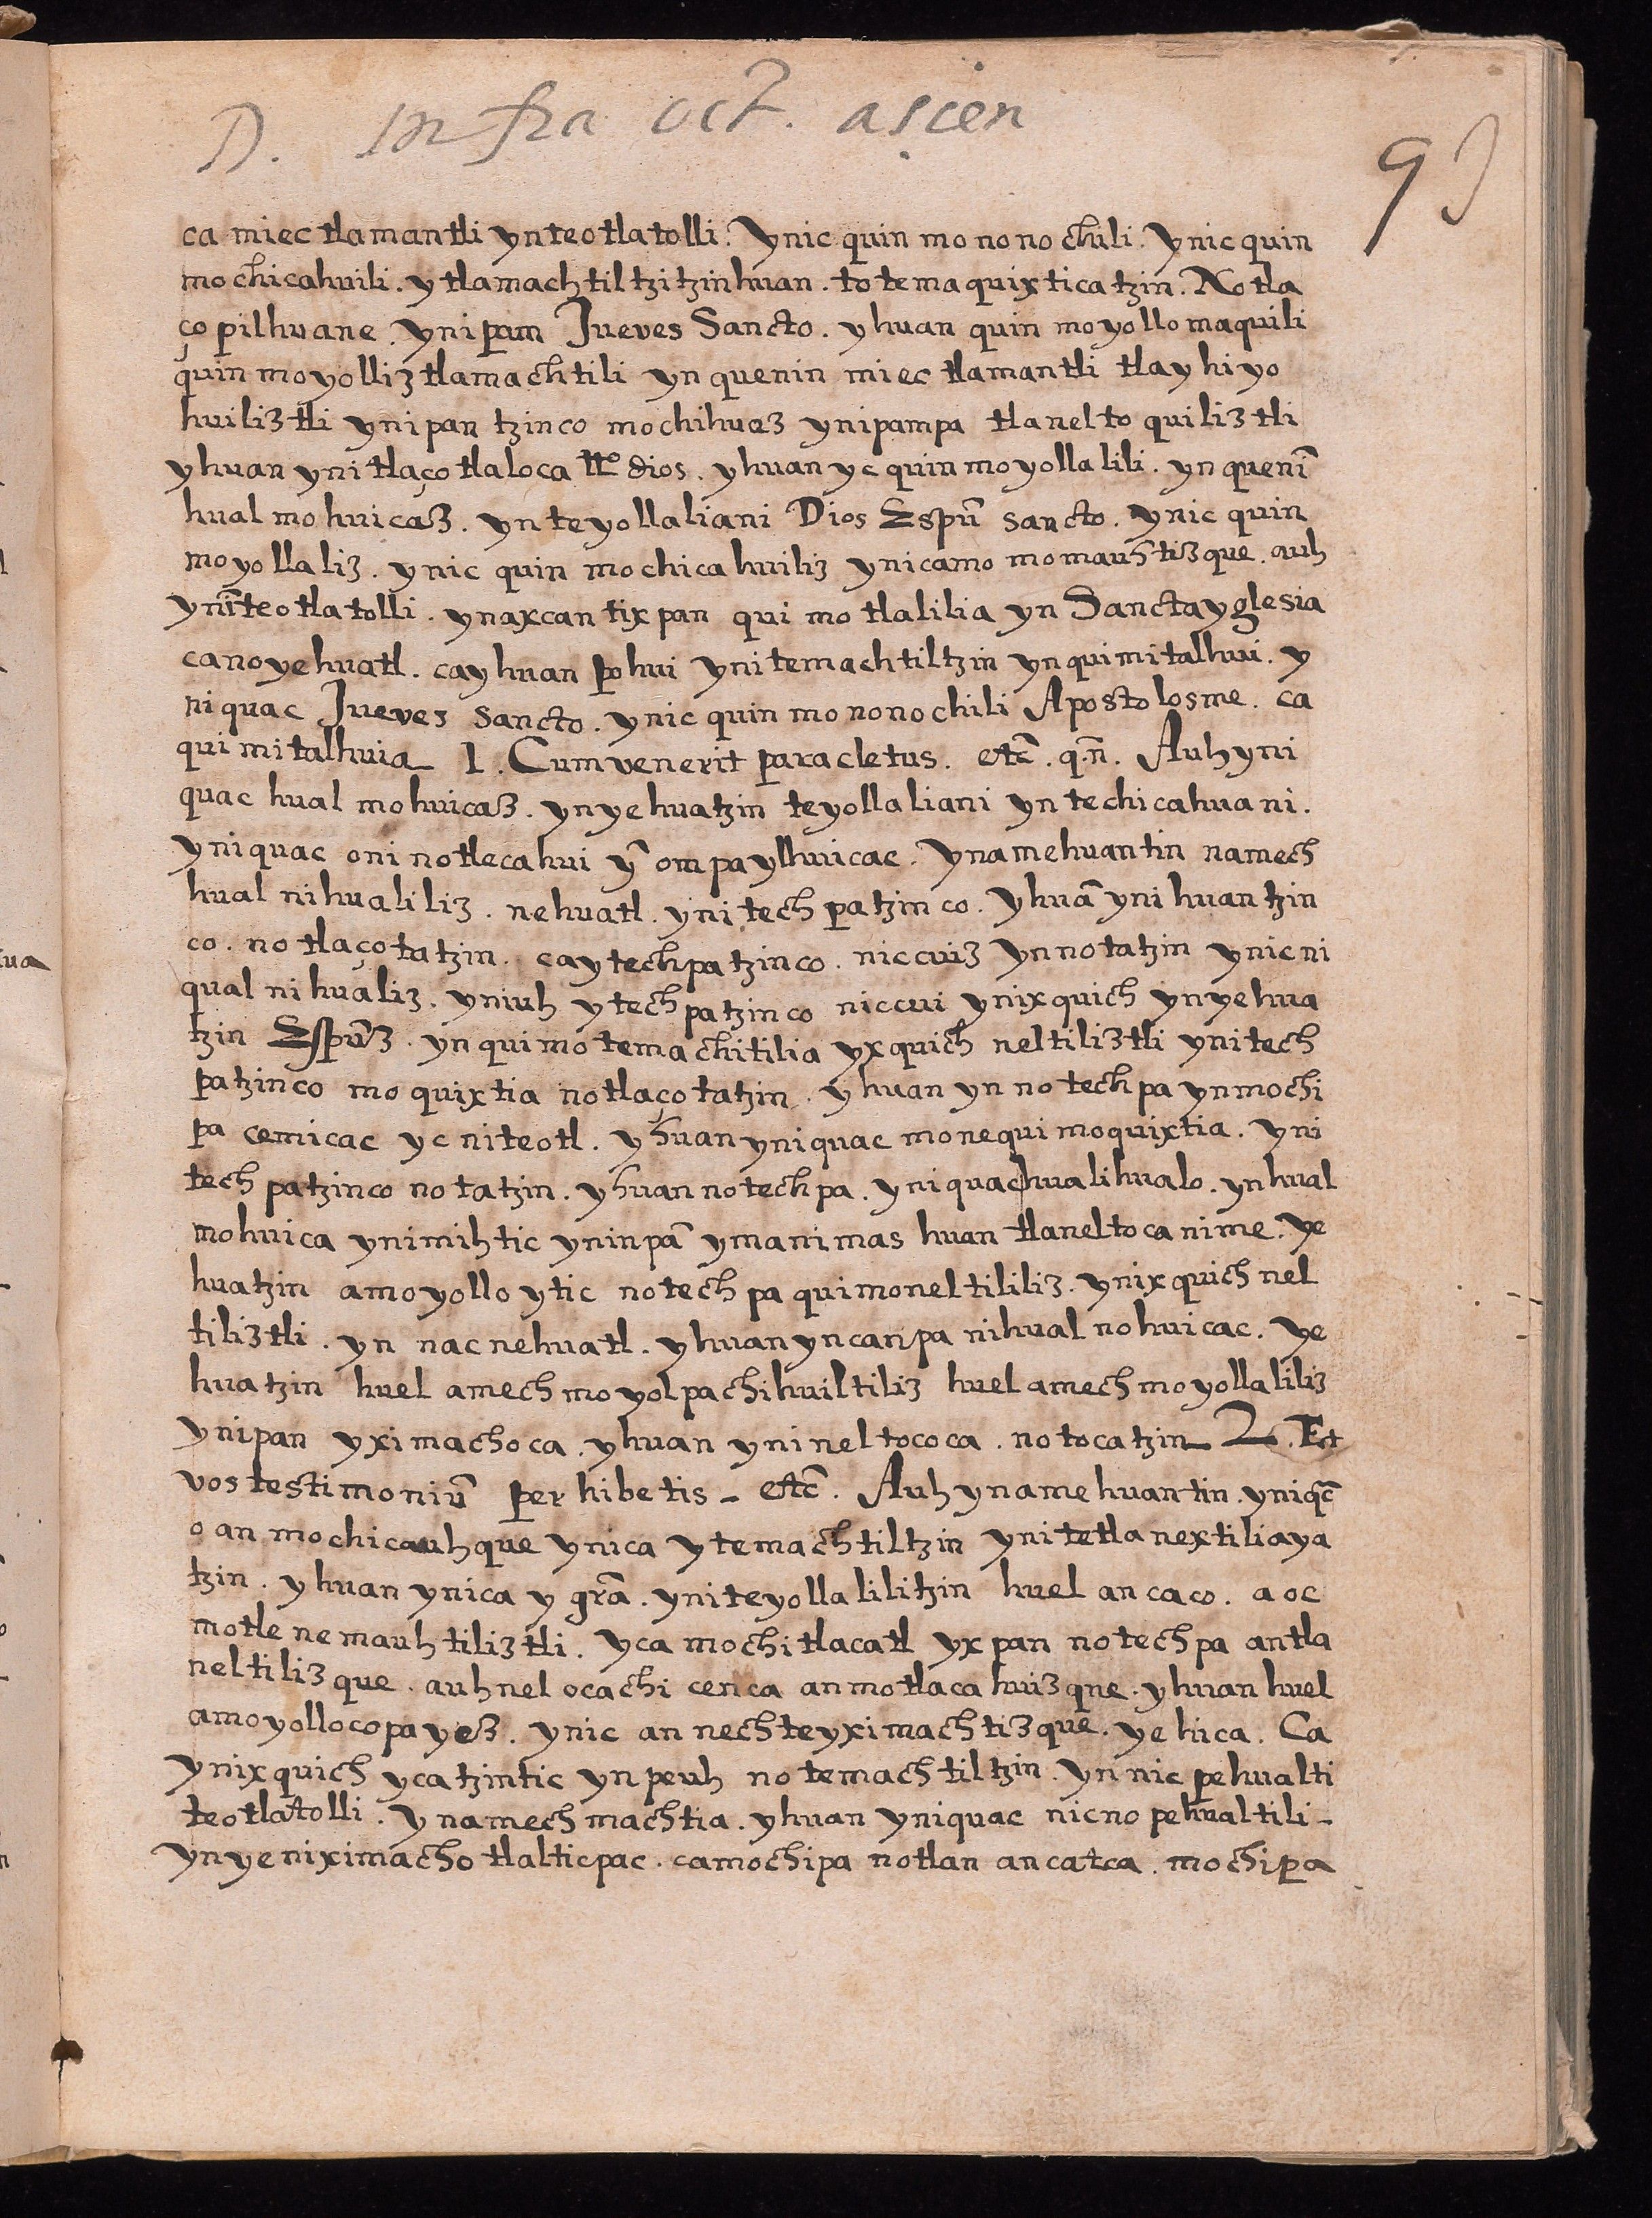 D. Infra oct. ascen
93
ca miec tlamantli ynteotlatolli. Ynic quin mo nono chili. Ynic quin
mochicahuili. y tlamachtiltzitzinhuan. totemaquixticatzin. Notla
ço pilhuane. ynipan Jueves Sancto. yhuan quin moyollo maquili
quin moyolliztlamachtili yn quenin miec tlamantli tlayhiyo
huiliztli ynipantzinco mochihuaz ynipampa tlanelto quiliztli
yhuan ynitlaçotlaloca tt.o dios. yhuan yc quin moyollalili. yn quenī
hualmohuicaz. yn teyollaliani Dios Espū sancto. ynic quin
moyollaliz. ynic quin mochicahuiliz ynicamo momauhtizque. auh
ynīteotlatolli. ynaxcan tixpan qui mo tlalilia yn Sanctayglesia
canoyehuatl. cayhuan pohui ynitemachtiltzin ynquimitalhui. y
niquac Jueves sancto. ynic quin mononochili Apostolosme. ca
quimitalhuia 1. Cumvenerit paracletus. etc̄. q.n̄. Auhyni
quac hual mohuicaz. ynyehuatzin teyollaliani yn techicahuani.
yniquac oninotlecahui ȳ ompa ylhuicac. ynamehuantin namech
hual nihualiliz. nehuatl. ynitech patzinco. yhuā ynihuantzin
co. notlaçotatzin. caytechpatzinco. niccuiz ynnotatzin ynicni
qualnihualiz. yniuh ytechpatzinco niccui ynixquich ynyehua
tzin Espūz. ynquimotemachitilia yxquich neltiliztli ynitech
patzinco moquixtia notlaçotatzin. yhuan yn notechpa ynmochi
pa cemicac yc niteotl. yhuan yniquac monequi moquixtia. yni
tech patzinco notatzin. yhuan notechpa. yniquac hualihualo. ynhual
mohuica ynimihtic yninpā ymanimas huan tlaneltocanime. ye
huatzin amoyollo ytic notechpa quimoneltililiz. ynixquich nel
tiliztli. yn nacnehuatl. yhuan yncanpa nihualnohuicac. ye
huatzin huel amechmoyolpachihuiltiliz huel amechmoyollaliliz
ynipan yximachoca. yhuan ynineltococa. notocatzin 2. Et
vos testimoniū perhibetis - etc̄. Auhynamehuantin. yniqc̄
oan mochicauhque ynica ytemachtiltzin ynitetlanextiliaya
tzin. yhuan ynica y grā. yniteyollalilitzin huel ancaco. aoc
motle nemauhtiliztli. yca mochitlacatl yxpan notechpa antla
neltilizque. auhnel ocachi cenca anmotlacahuizque. yhuan huel
amoyollocopayez. ynic an nechteyximachtizque. yehica. Ca
ynixquich ycatzintic ynpeuh notemachtiltzin. ynnic pehualti
teotlatolli. ynamechmachtia. yhuan yniquac nicno pehualtili-
ynyeniximacho tlalticpac. camochipa notlan ancatca. mochipa